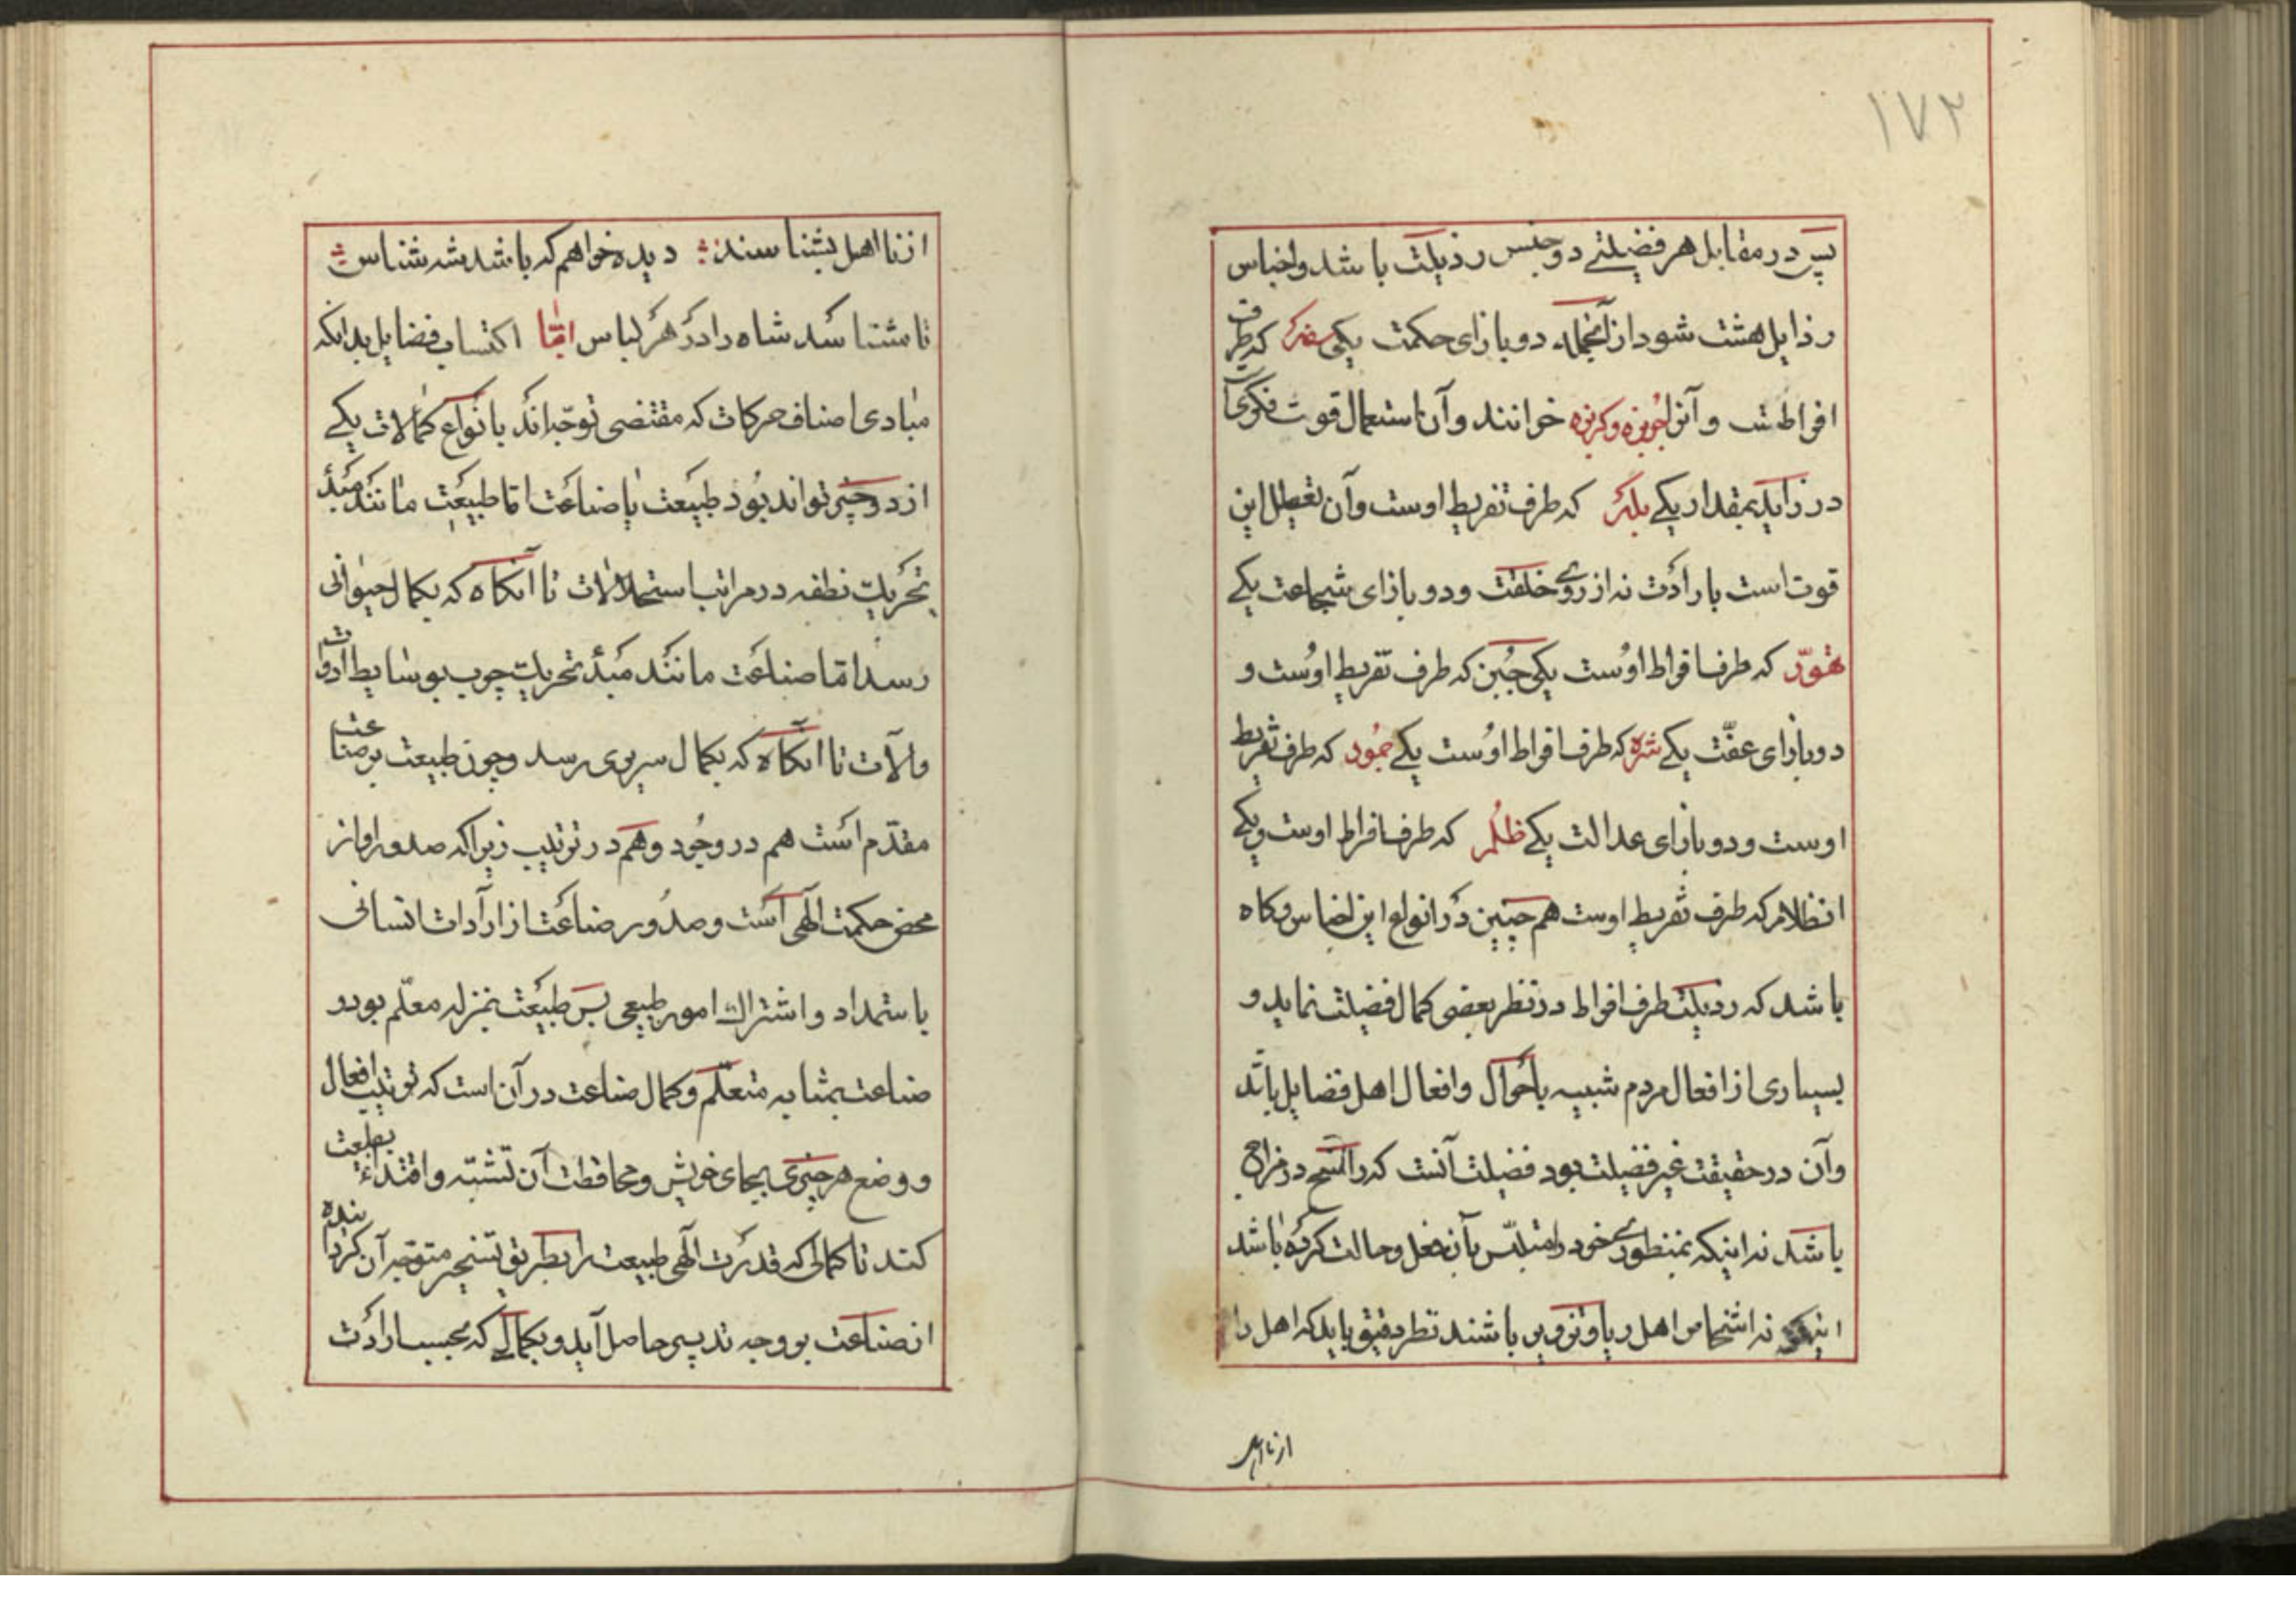 ۱۷۲
پس در مقابل هر فضیلتے دو جنس رذیلت باشد و اجناس
رذایل هشت شود از آنجمله دو بازای حکمت یکی سفه که طرف
افراطست و آنرا جربزه و کربزه خوانند و آن استعمال قوت فکری
در زاید بمقدار یکے بله که طرف تفریط اوست و آن تعطیل این
قوت است بارادت نه از روے خلقت و دو بازای شجاعت یکے
تهوّر که طرف افراط اوست یکی جبن که طرف تفریط اوست و
دو بازای عفّت یکے شره که طرف افراط اوست یکے خمود که طرف تفریط
اوست و دو بازای عدالت یکے ظلم که طرف افراط اوست و یکے
انظلام که طرف تفریط اوست هم چنین در انواع این اجناس و کاه
باشد که رذیلت طرف افراط در نظر بعضی کمال فضیلت نماید و
بسیاری از افعال مردم شبیه باحوال و افعال اهل فضایل باشد
و آن در حقیقت غیر فضیلت بود فضیلت آنست که راسخ در مزاج
باشد نه اینکه بمنظورے خود را متلبّس بآن فعل و حالت کرده باشد
نه اشخاص اهل ریا و تزویر باشند نظر دقیق باید که اهل را
از نااهل
از نااهل بشناسند دیده خواهم که باشد شه شناس
تا شناسد شاه را در هر لباس امّا اکتساب فضایل بدانکه
مبادی اصناف حرکات که مقتضی توجّه اند بانواع کمالات یکے
از دو چیز تواند بود طبیعت یا صناعت اما طبیعت مانند مبدأ
تحریک نطفه در مراتب استحالات تا آنکاه که بکمال حیوانی
رسد امّا صناعت مانند مبدأ تحریک چوب بوسایط ادوات
و الآت تا آنکاه که بکمال سریری رسد و چون طبیعت بر صناعت
مقدّم است هم در وجود و هم در ترتیب زیرا که صدور او از
محض حکمت الهی است و صدور صناعت از ارادات انسانی
باستمداد و اشتراک امور طبیعی پس طبیعت بمنزله معلّم بود و
صناعت بمثابه متعلّم و کمال صناعت در آن است که ترتیب افعال
و وضع هر چیزی بجای خویش و محافظت آن تشبّه و اقتداء بطبیعت
کند تا کمالی که قدرت الهی طبیعت را بطریق تسخیر متوجّه آن کرداننده
از صناعت بر وجه تدبیر حاصل آید و بکمالے که بحسب ارادت